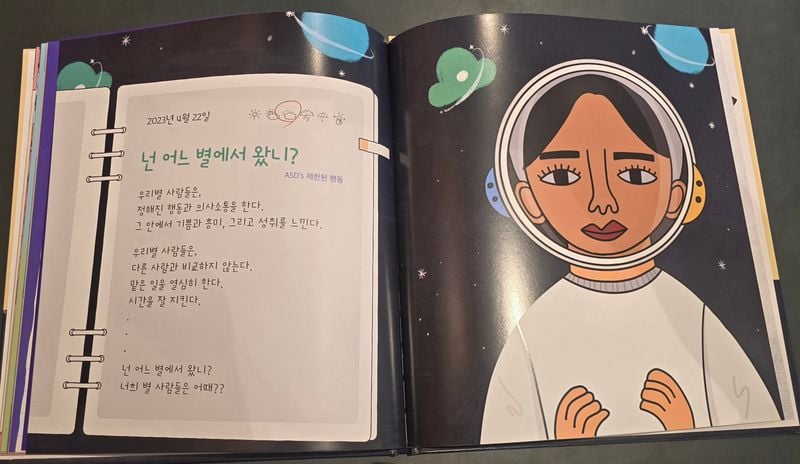 2023년 4월 22일
넌 어느 별에서 왔니?
ASD's 제한된 행동
우리별 사람들은,
정해진 행동과 의사소통을 한다.
그 안에서 기쁨과 흥미, 그리고 성취를 느낀다.
우리별 사람들은,
다른 사람과 비교하지 않는다.
맡은 일을 열심히 한다.
시간을 잘 지킨다.
.
.
.
넌 어느 별에서 왔니?
너희 별 사람들은 어때??